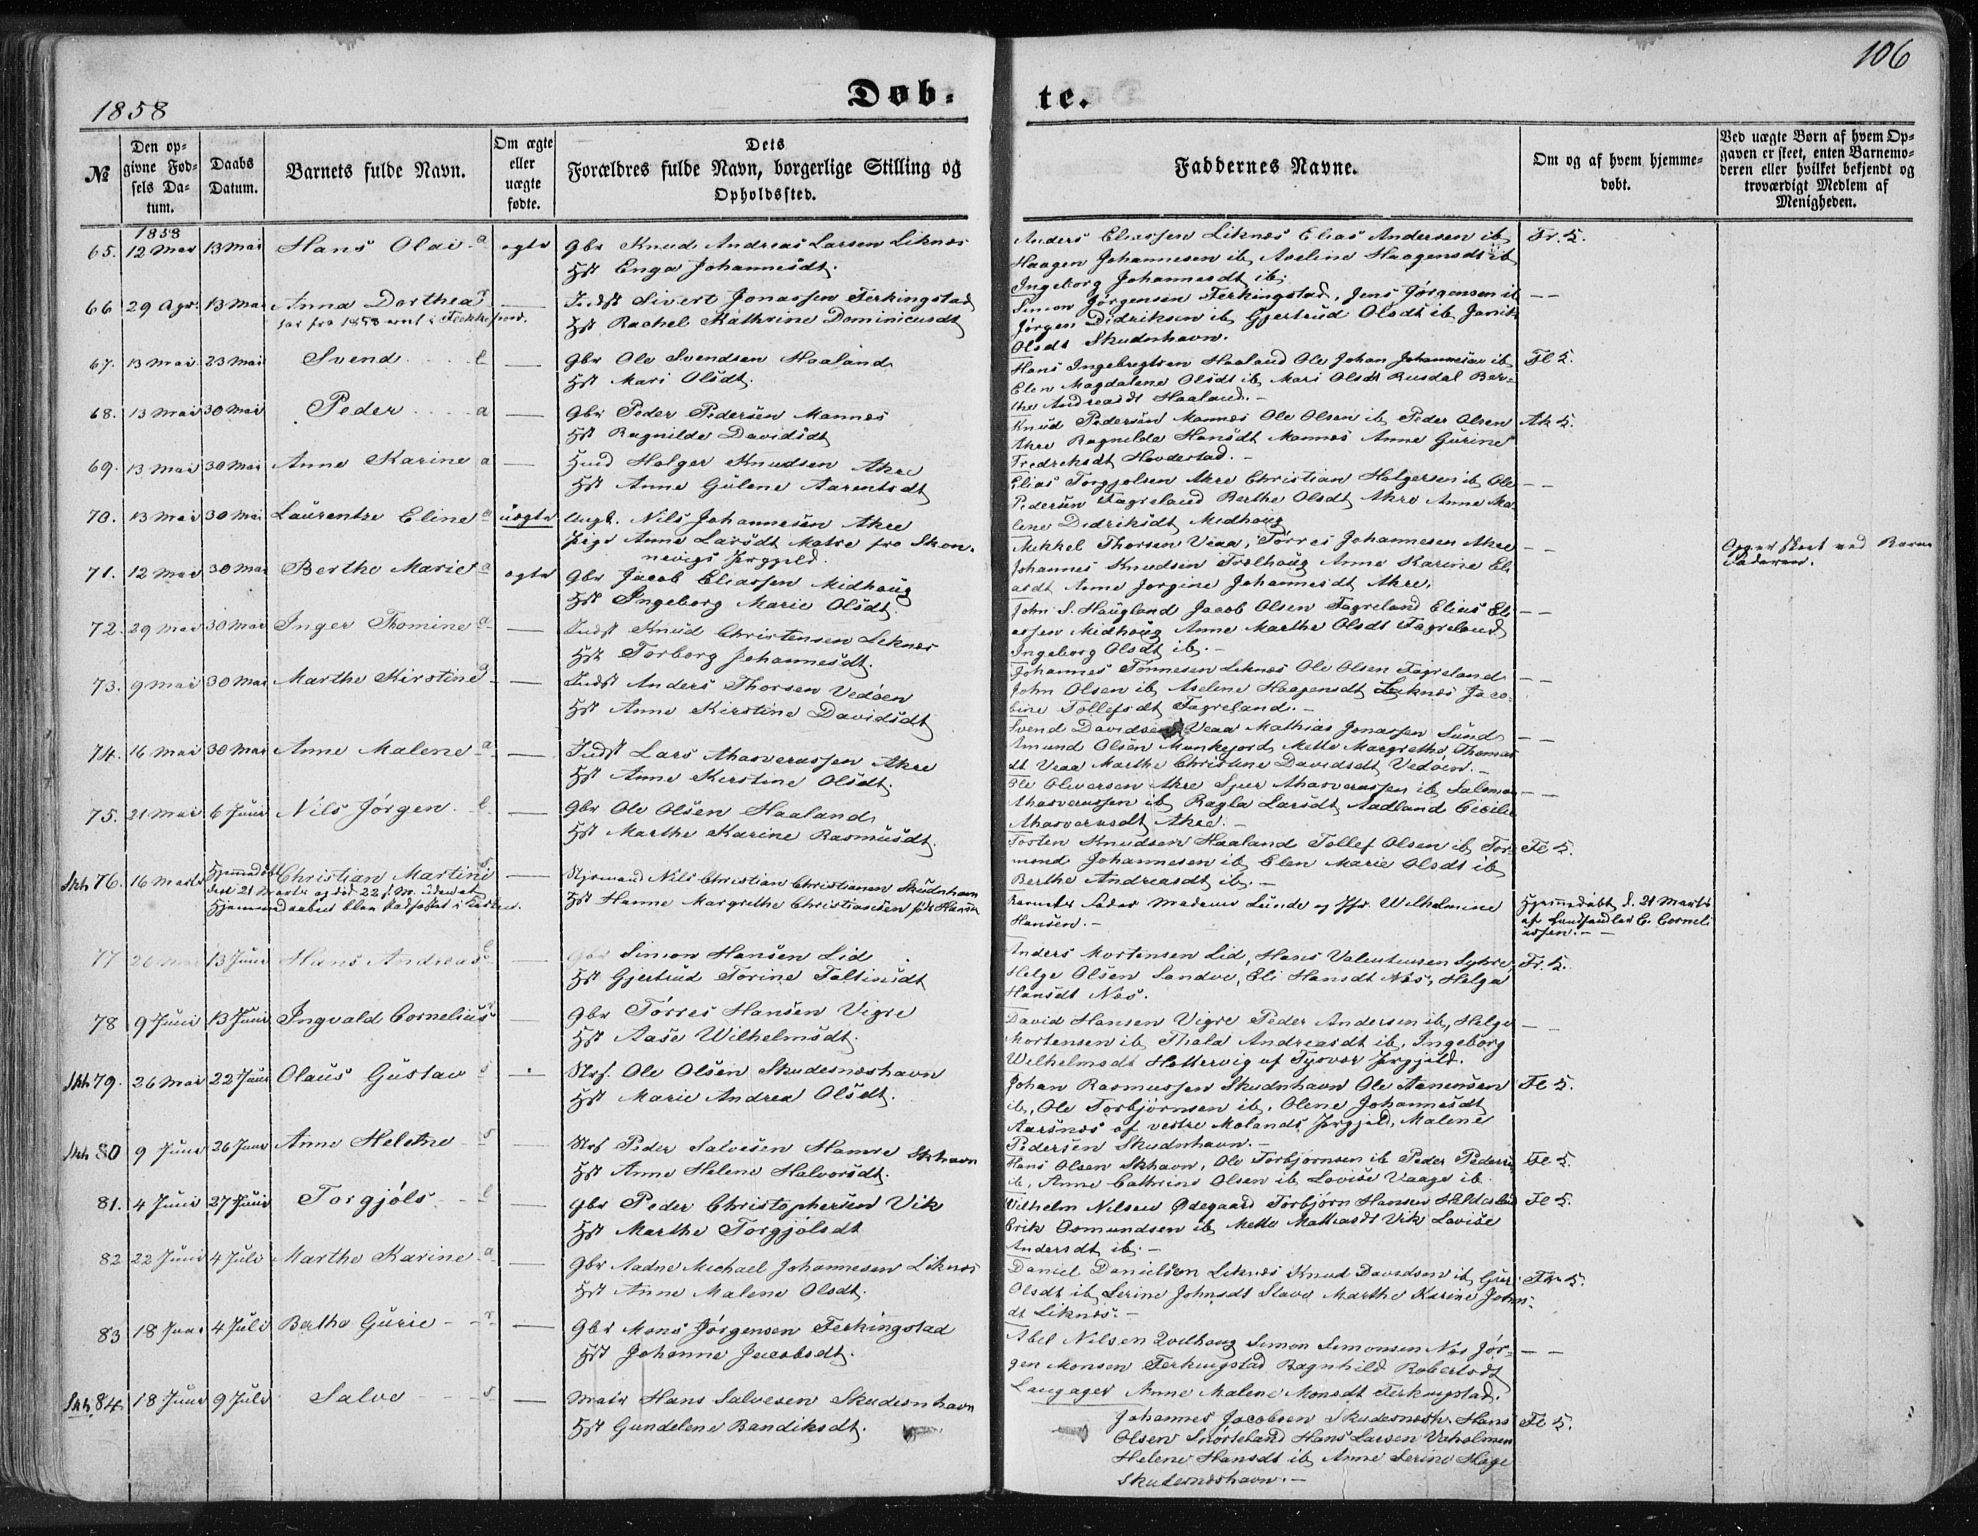 106
1858
Døb-
te.
№
Den op-
givne Fød-
sels Da-
tum.
Daabs
Datum.
Barnets fulde Navn.
Om ægte
eller
uægte
fødte.
Dets
Forældres fulde Navn, borgerlige Stilling og
Opholdssted.
Faddernes Navne.
Om og af hvem hjemme-
døbt.
Ved uægte Børn af hvem Op-
gaven er skeet, enten Barnemo-
deren eller hvilket bekjendt og
troværdigt Medlem af
Menigheden.
1858
65. 12 Mai 13 Mai Hans Olai a ægte Gbr Knud Andreas Larsen Liknes
Hst Enga Johannesdt.
Anders Eliassen Liknes Elias Andersen ib,
Haagen Johannesen ib, Aseline Haagensdt ib
Ingeborg Johannesdt ib.
Fr. 5.
66 29 Apr. 13 Mai Anna Dorthea — Indst Sivert Jonassen Ferkingstad
Hst Rachel Kathrine Dominicusdt
Simon Jørgensen Ferkingstad, Jens Jørgensen ib
Jørgen Didriksen ib, Gjertrud Olsdt ib,
Olsdt Skudnhavn.
— —
67. 13 Mai 23 Mai Svend l — Gbr Ole Svendsen Haaland
Hst Mari Olsdt.
Hans Ingebregtsen Haaland Ole Johan Johannesen ib,
Elen Magdalene Olsdt ib, Mari Olsdt Rusdal Ber-
the Andreasdt Haaland. —
Fl 5.
68. 13 Mai 30 Mai Peder a — Gbr Peder Pedersen Mannes
Hst Ragnilde Davidsdt
Knud Pedersen Mannes Ole Olsen ib, Peder Olsen
Akre Ragnilde Hansdt Mannes Anne Gurine
Fredriksdt Hovdestad. —
Ak 5.
69. 13 Mai 30 Mai Anne Karine a — Holger Knudsen Akre
Hst Anne Gulene Aarentsdt
Elias Torgjolsen Akre Christian Holgersen ib, Ole
Pedersen Fagreland Berthe Olsdt Akre Anne Ma-
lene Didriksdt Midhoug
— —
70. 13 Mai 30 Mai Laurentze Eline a uægte Ungk. Nils Johannesen Akre
Pige Anne Larsdt Matre fra Skon-
nevigs Prgjeld.
Mikkel Thorsen Veaa, Torres Johannesen Akre
Johannes Knudsen Anne Karine Eli-
asdt Anne Jorgine Johannesdt Akre.
— —
Opg er skeet ved Barne-
faderen.
71. 12 Mai 30 Mai Berthe Marie a ægte Gbr Jacob Eliassen Midhoug
Hst Ingeborg Marie Olsdt.
John S. Haugland Jacob Olsen Fagreland Elias Eli-
assen Midhoug Anne Marthe Olsdt Fagreland
Ingeborg Olsdt ib. —
— —
72. 29 Mai 30 Mai Inger Thomine a — Indst Knud Christensen Leknes
Hst Torborg Johannesdt.
Johannes Tonnesen Leknes Ole Olsen Fagreland
John Olsen ib, Aselene Haagensdt Leknes Jaco-
bine Tollefsdt Fagreland. —
— —
73. 9 Mai 30 Mai Marthe Kirstine a — Indst Anders Thorsen Vedøen
Hst Anne Kirstine Davidsdt
Svend Davidsen Veaa Mathias Jonassen Sund
Amund Olsen Munkejord, Mette Margrethe Thomas-
dt Veaa Marthe Christine Davidsdt Vedøen. —
— —
74. 16 Mai 30 Mai Anne Malene a — Indst Lars Ahasverassen Akre
Hst Anne Kirstine Olsdt.
Ole Oliversen Akre Sjur Ahasverassen ib, Salomon
Ahasverassen ib, Ragla Larsdt Aadland Cicilie
Ahasverasdt Akre. —
— —
75. 21 Mai 6 Juni Nils Jørgen l — Gbr Ole Olsen Haaland
Hst Marthe Karine Rasmusdt.
Torsten Knudsen Haaland Tollef Olsen ib, Tor-
mond Johannesen ib, Elen Marie Olsdt ib
Berthe Andreasdt ib. —
Fl 5.
Skh 76. 16 Marts Hjemmedøbt Christian Martin s — Styrmand Nils Christian Christiansen Skudnhavn
den 21 Marts og død 22 s. M. uden at
Hjemmedaaben blev stadfæstet i Kirken.
Hst Hanne Margrethe Christiansen født Hansen
Barnets Fader Madame Lunde og Jfr. Wilhelmine
Hansen. —
Hjemmedøbt d. 21 Marts
af Landhandler C. Corneli-
ussen. —
77 13 Juni Hans Andreas l — Gbr Simon Hansen Lid
Hst Gjertrud Torine Toltinsdt
Anders Mortensen Lid, Hans Valentinsen Syhre,
Helge Olsen Sandve, Eli Hansdt Nes, Helga
Hansdt Nes.
Fr. 5.
78 9 Juni 13 Juni Ingvald Cornelius — Gbr Tørres Hansen Vigre
Hst Aase Wilhelmsdt.
David Hansen Vigre Peder Andersen ib, Helge
Mortensen ib, Thala Andreasdt ib, Ingeborg
Wilhelmsdt Hattervig af Tysvær Prgjeld.
— —
Skh 79. 26 Mai 22 Juni Olaus Gustav s Ole Olsen Skudesneshavn
Hst Marie Andrea Olsdt.
Johan Rasmussen Skudnhavn Ole Aanensen
ib, Ole Torbjørnsen ib. Olene Johannesdt
Aarsnes af vestre Molands Prgjeld, Malene
Pedersen Skudnhavn. —
Fl 5.
Skh 80 9 Juni 26 Juni Anne Helene s — Peder Salvesen Hamre Skhavn
Hst Anne Helene Halvorsdt.
Hans Olsen Skhavn, Ole Torbjornsen ib Peder Pedersen
ib, Anne Cathrine Olsen ib, Lovise Vaage ib.
Fl 5.
81. 4 Juni 27 Juni Torgjøls l — Gbr Peder Christophersen Vik
Hst Marthe Torgjølsdt
Vilhelm Nilsen Ødegaard Torbjørn Hansen
Erik Osmundsen ib, Mette Mathiasdt Vik Lovise
Andersdt ib. —
Fl 5.
82 22 Juni 4 Juli Marthe Karine a — Gbr Aadne Michael Johannesen Liknes
Hst Anne Malene Olsdt.
Daniel Danielsen Liknes Knud Davidsen ib, Guri
Olsdt ib, Serine Johnsdt Stave Marthe Karine Johns-
dt Liknes. —
83 18 Juni 4 Juli Bertha Gurie — Gbr Mons Jørgensen Ferkingstad
Hst Johanne Jacobsdt.
Abel Nilsen Qvilhaug Simon Simonsen Nes Jør-
gen Monsen Ferkingstad Ragnhild Robertsdt
Langager Anne Malene Monsdt Ferkingstad.
— —
Skh 84. 18 Juni 9 Juli Salve s — Matr Hans Salvesen Skudesnhavn
Hst Gundelene Bendiksdt.
Johannes Jacobsen Skudesnesh. Hans
Olsen Snørteland Hans Larsen Vaholmen
Helene Hansdt ib, Anne Serine Hage
Skudesneshavn. —
Fl 5.